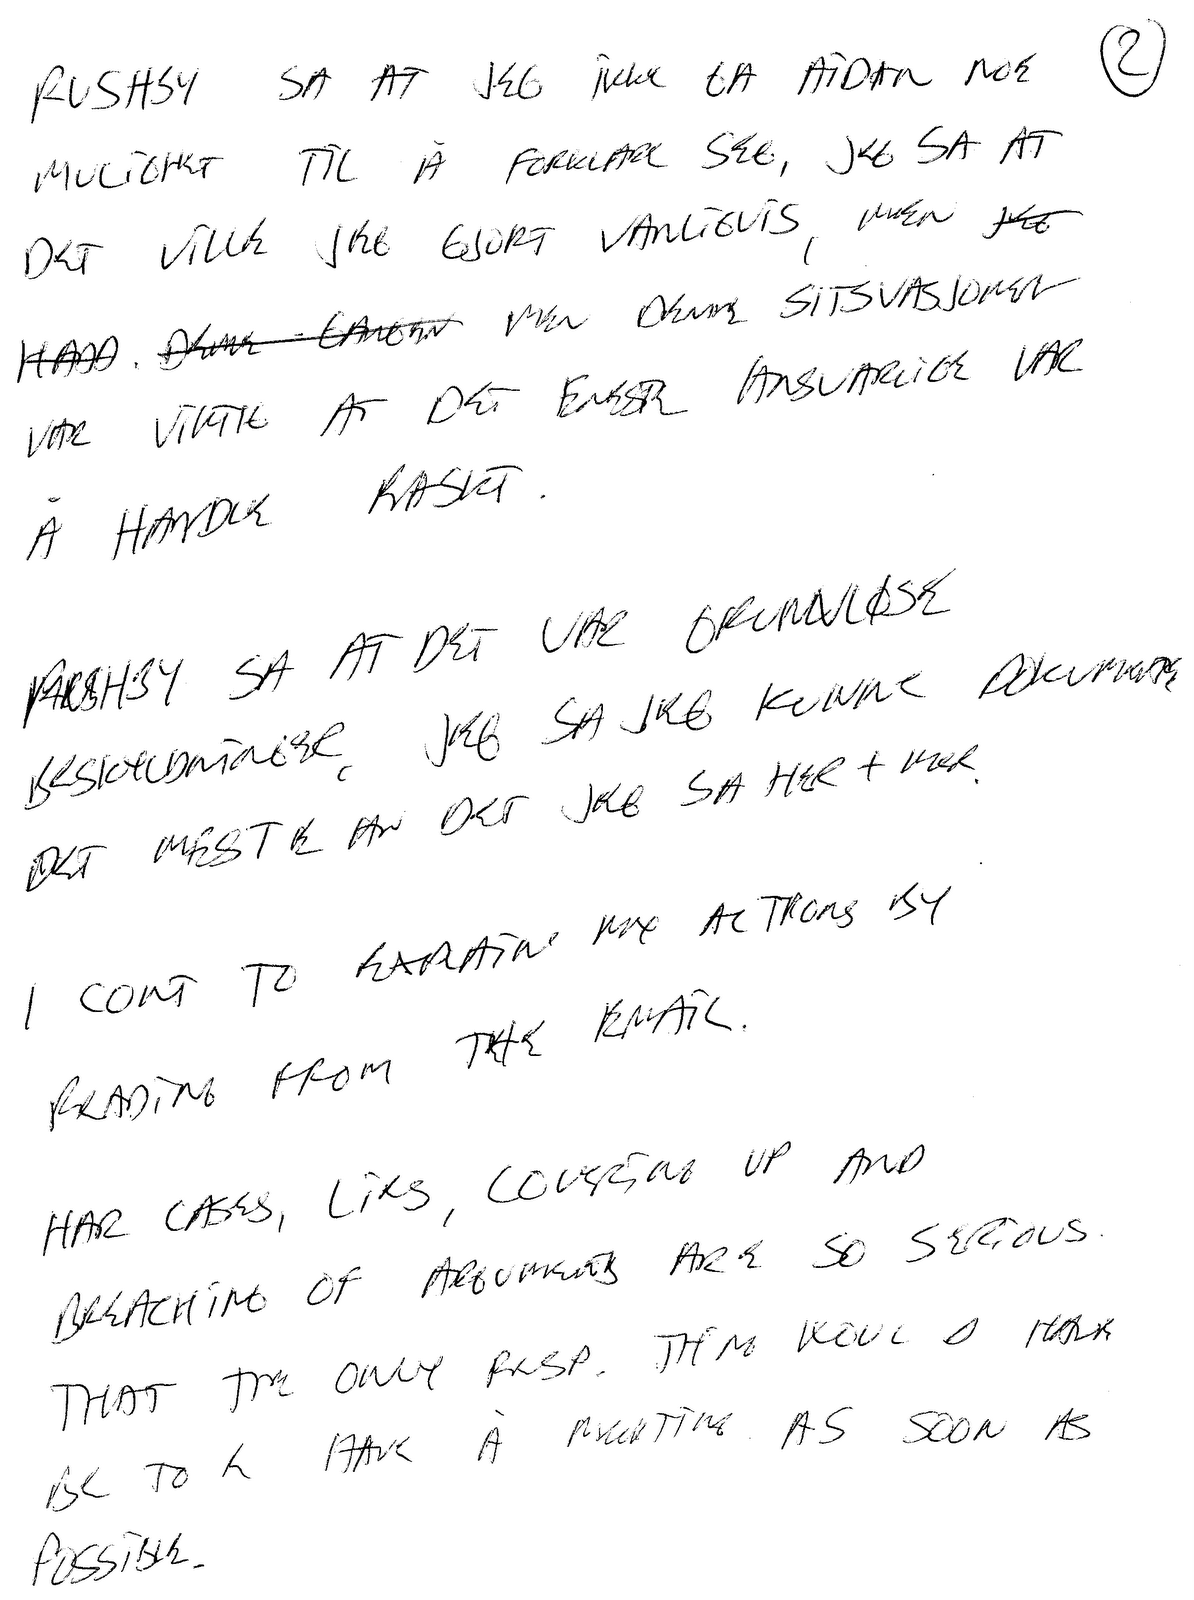 RUSHBY SA AT JEG IKKE GA AIDAN NOE ②
MULIGHET TIL Å FORKLARE SEG, JEG SA AT
DET VILLE JEG GJORT VANLIGVIS, MEN JEG
HADD. DENNE GANGEN MEN DENNE SITSUASJONEN
VAR VIKTIG AT DET ENESTE ANSVARLIGE VAR
Å HANDLE RASKT.
RUSHBY SA AT DET VAR GRUNNLØSE
BESKYLDNINGER, JEG SA JEG KUNNE DOKUMENTE
DET MESTE AV DET JEG SA HER + MER.
I CONT TO EXPLAIN MY ACTIONS BY
READING FROM THE EMAIL.
HAR CASES, LIES, COVERING UP AND
BREACHING OF ARGUMENTS ARE SO SERIOUS.
THAT THE ONLY RESP. THING WOULD HAVE
BE TO HAVE A MEETING AS SOON AS
POSSIBLE.